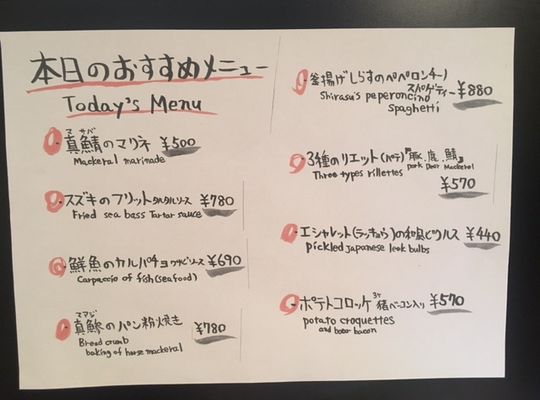 本日のおすすめメニュー
Today's Menu
真鯖のマリネ ¥500
マサバ
Mackeral marinade
スズキのフリット タルタルソース ¥780
Fried sea bass Tartar sauce
鮮魚のカルパチョ ワサビソース ¥690
Carpaccio of fish(seafood)
マアジ
真鯵のパン粉焼き ¥780
Bread crumb
baking of horse mackeral
釜揚げしらすのペペロンチーノ
スパゲティー ¥880
Shirasu's peperoncino
spaghetti
3種のリエット(パテ)『豚、鹿、鯖』
Three types rillettes pork Deer Mackerel
¥570
エシャレット(ラッキョウ)の和風ピクルス ¥440
pickled japanese leek bulbs
ポテトコロッケ 猪ベーコン入り ¥570
potato croquettes
and boar bacon